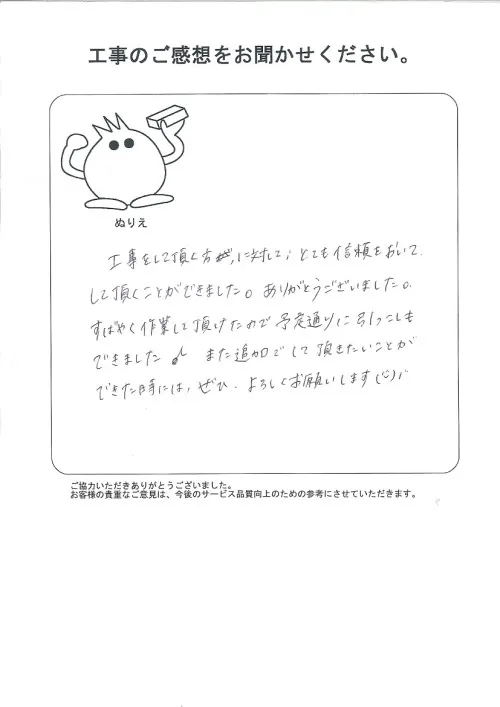 工事のご感想をお聞かせください。
ぬりえ
工事をして頂く方が、に対して、とても信頼をおいて、
して頂くことができました。ありがとうございました。
すばやく作業して頂けたので予定通りに引っこしも
できました♪ また追加でして頂きたいことが
できた時には、ぜひ、よろしくお願いします(^^)/
ご協力いただきありがとうございました。
お客様の貴重なご意見は、今後のサービス品質向上のための参考にさせていただきます。